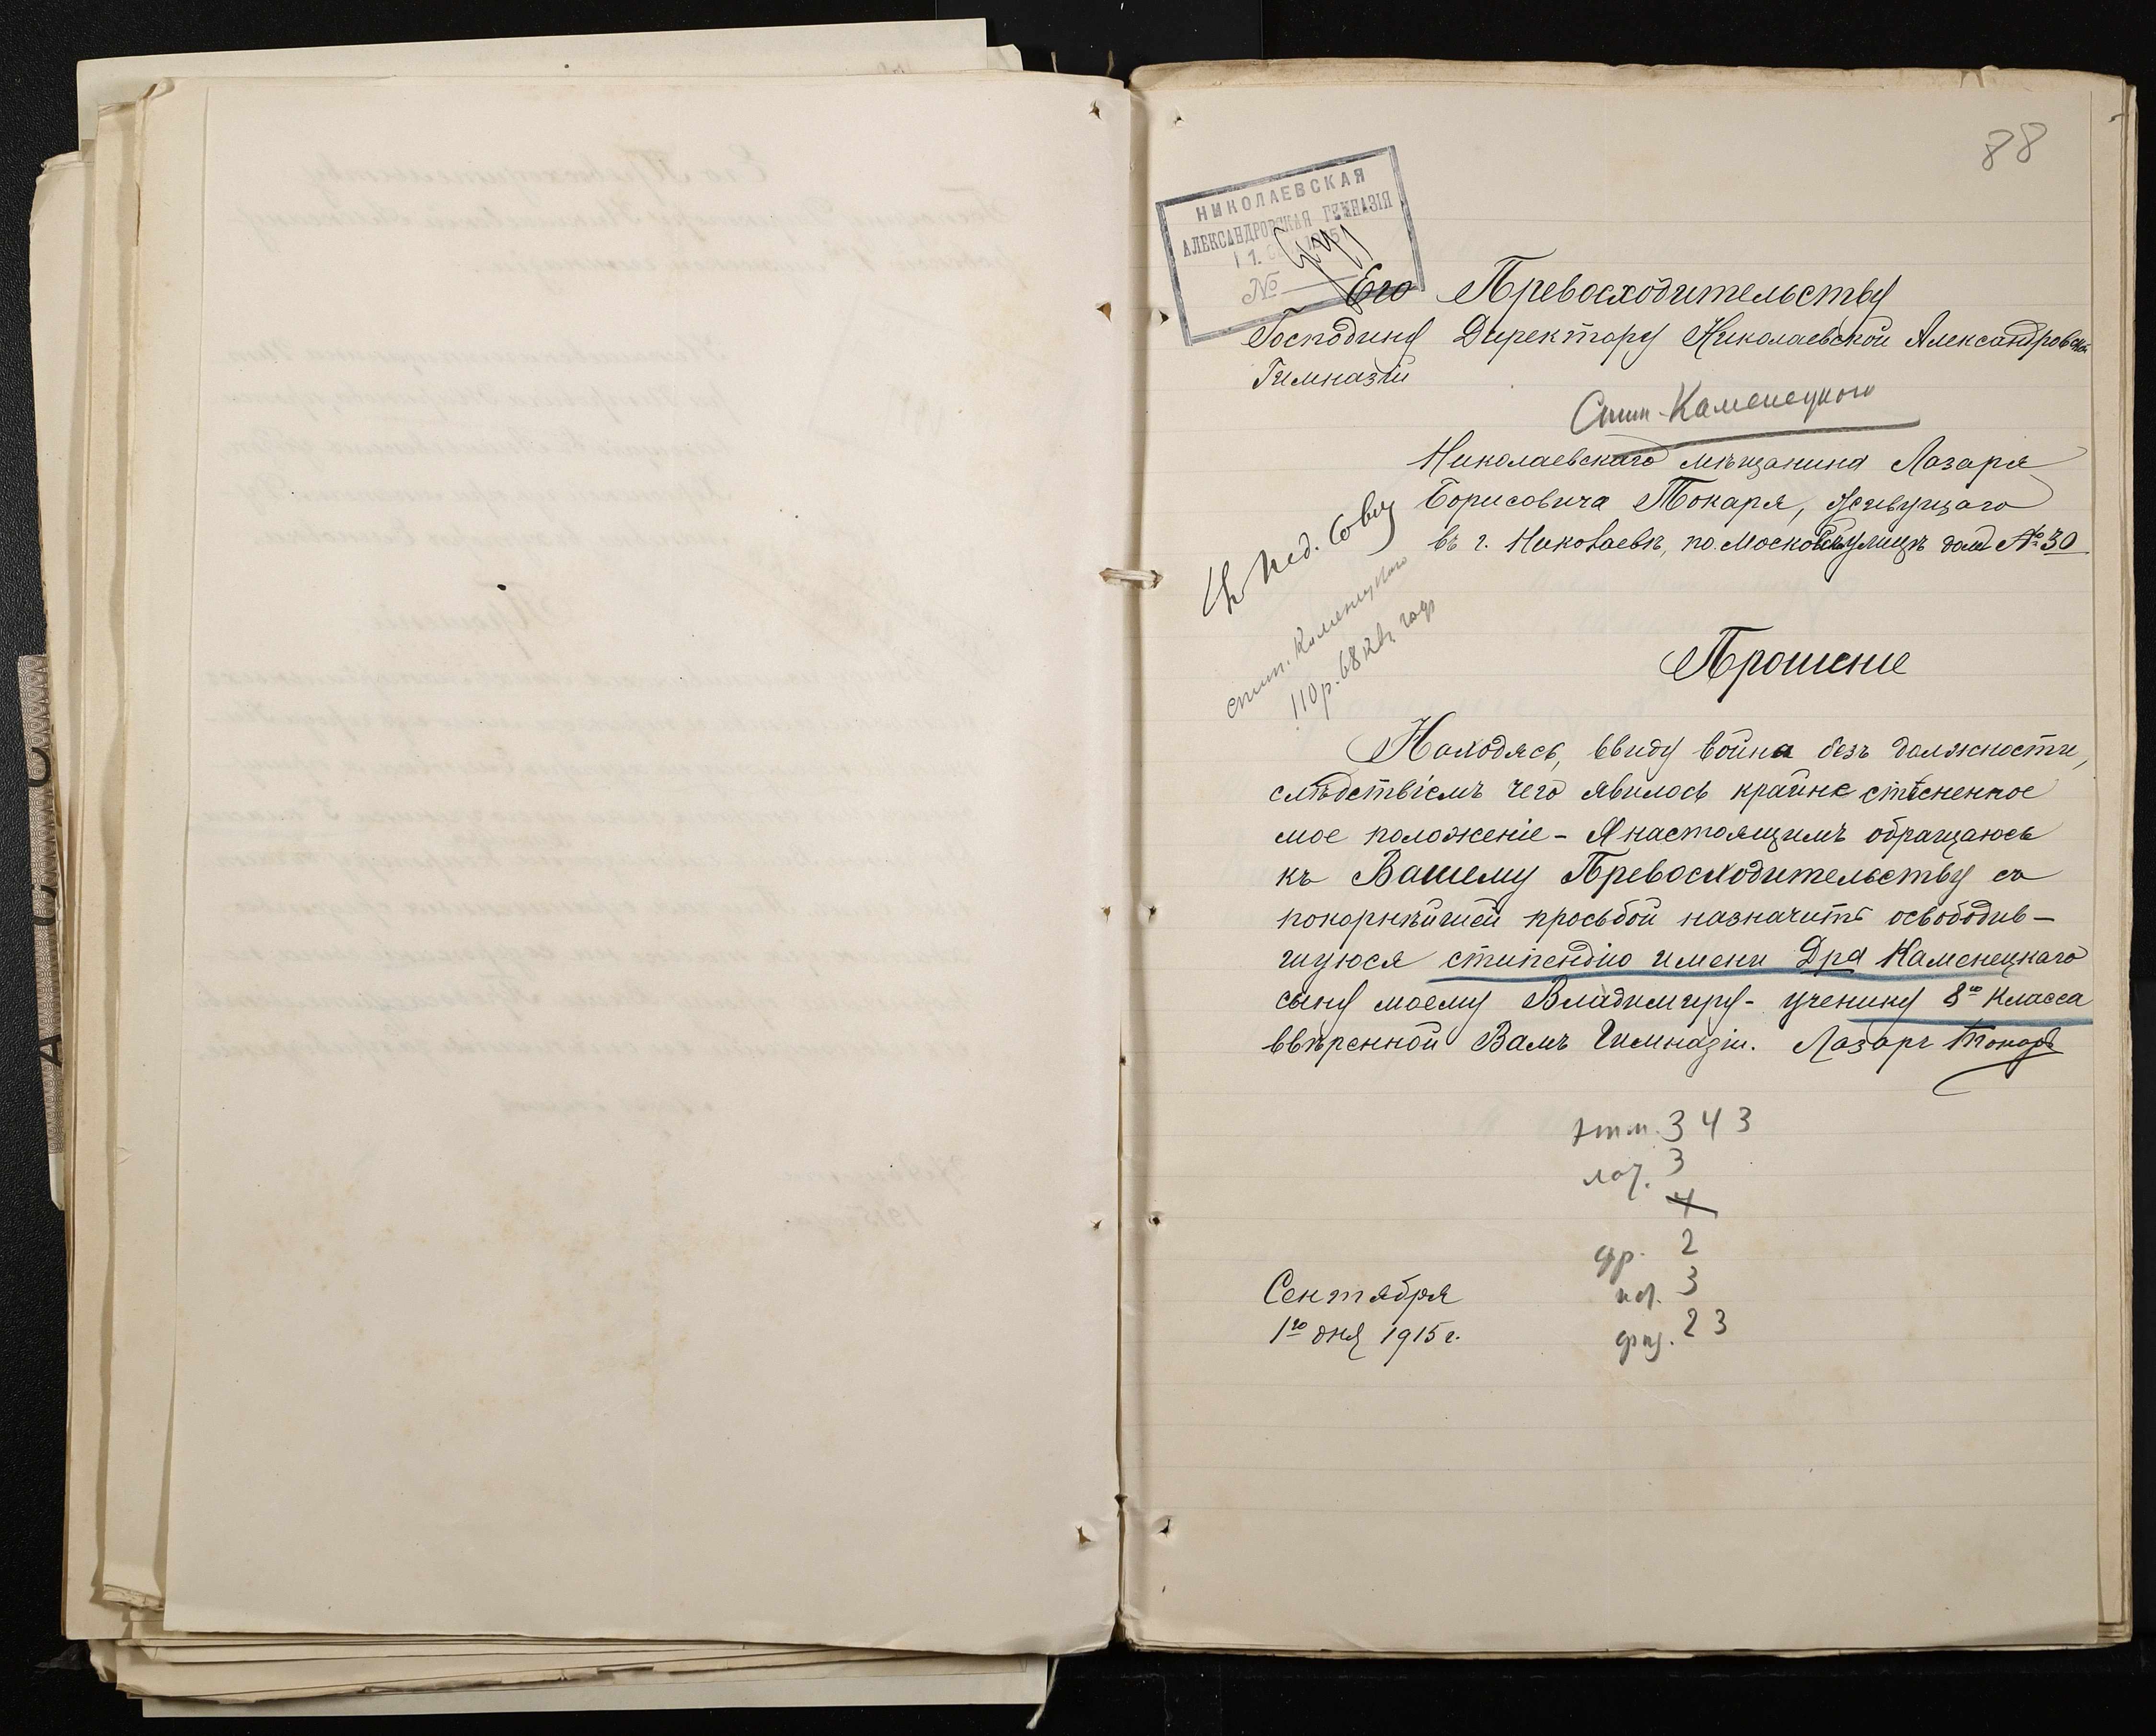 88
НИКОЛАЕВСКАЯ
АЛЕКСАНДРОВСКАЯ ГИМНАЗІЯ
№
Его Превосходительству
Господину Директору Николаевской Александровской
Гимназіи
Стип. Каменецкого
Николаевскаго мѣщанина Лазаря
Борисовича Токаря, живущаго
въ г. Николаевѣ, по Московск. улицѣ домъ № 30
Въ Пед. Совѣ
стип. Каменецкаго
110 р. 68 к. въ годъ
Прошеніе
Находясь, ввиду войны безъ должности,
слѣдствіемъ чего явилось крайне стѣсненное
мое положеніе - Я настоящимъ обращаюсь
къ Вашему Превосходительству съ
покорнѣйшей просьбой назначить освободив-
шуюся стипендію имени Д-ра Каменецкаго
сыну моему Владимиру - ученику 8го класса
ввѣренной Вамъ Гимназіи. Лазарь Токарь
343
лат. 3
4
фр. 2
ист. 3
физ. 23
Сентября
1го дня 1915 г.